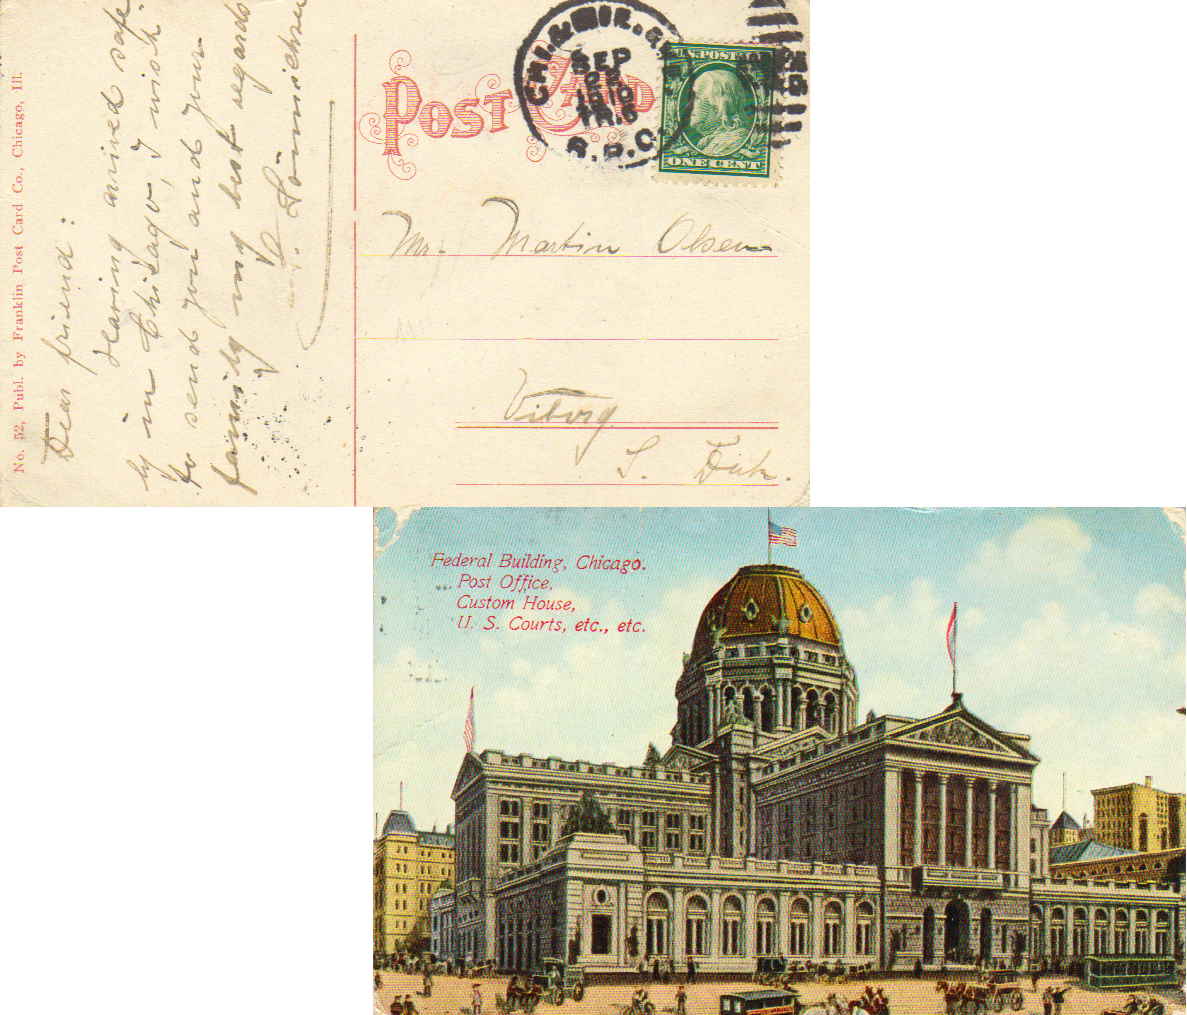 No. 52, Publ. by Franklin Post Card Co., Chicago, Ill.
Dear friend:
Having arrived safe-
ly in Chicago, I wish
to send you and your
family my best regards
POST CARD
CHI. & MIL.
SEP
1910
R.P.O.
U.S. POSTAGE
ONE CENT
Mr. Martin Olsen
Viborg
S. Dak.
Federal Building, Chicago.
Post Office,
Custom House,
U. S. Courts, etc., etc.